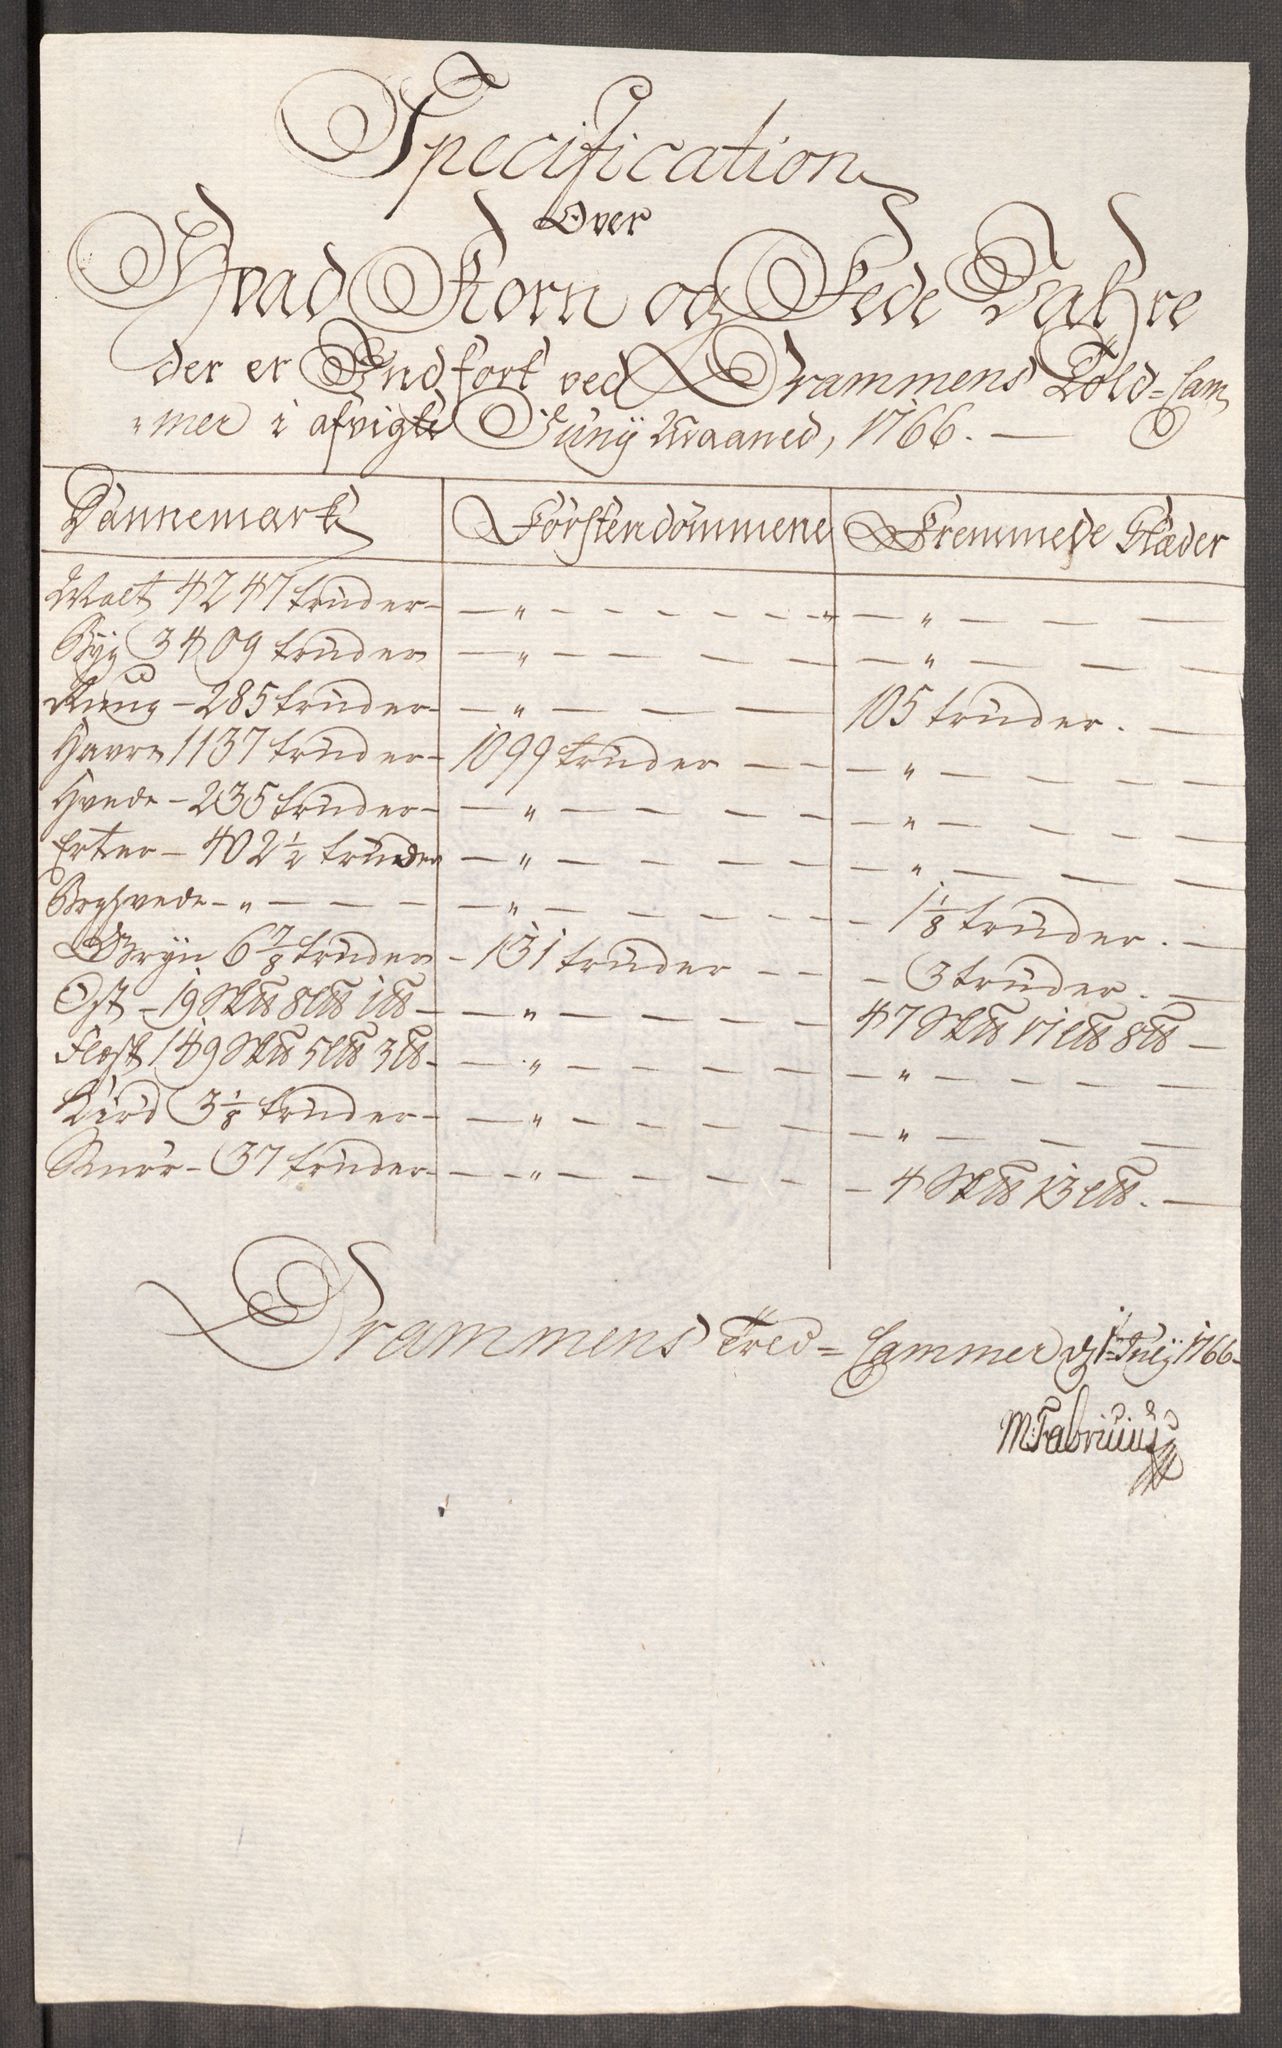 Specification
Over
Hvad Korn og Fede Vahre
der er Indført ved Drammens Told=Cam
"mer i afvigte Junij Maaned, 1766. —
Dannemark | Förstendömmene | Fremmede Stæder
Malt 4247 tønder — | — " — — — | — " — — —
Byg 3409 tønder | — " — — — | — " — — —
Rug — 285 tønder — | — " — — — | 105 tønder. —
Havre 1137 tønder — | 1099 tønder — — | — " — — —
Hvede — 235 tønder — | — " — — — | — " — — —
Erter — 402 1/2 tønder | — " — — — | — " — — —
Boghvede — " — — — | — " — — — | — 1 1/8 tønder. —
Gryn 6 7/8 tønder | — 131 tønder — — | — 3 tønder. —
Ost — 19 Sk℔ 8 L℔ 1 ℔ — | — " — — — | 47 Sk℔ 17 L℔ 8 ℔ —
Flesk 149 Sk℔ 5 L℔ 3 ℔ — | — " — — — | — " — — —
Kiöd 3 1/8 tønder — | — " — — — | — " — — —
Smör — 37 tønder — | — " — — — | — 4 Sk℔ 13 L℔. —
Drammens Told=Cammer d. 1te Julij 1766
M: Fabricius